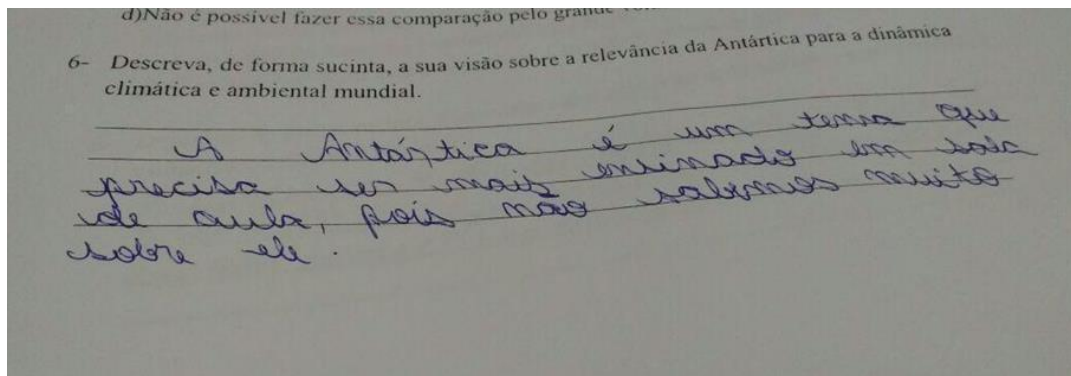 d)Não é possível fazer essa comparação pelo grande
6- Descreva, de forma sucinta, a sua visão sobre a relevância da Antártica para a dinâmica
climática e ambiental mundial.
A Antártica é um tema que
precisa ser mais ensinado em sala
de aula, pois não sabemos muito
sobre ele.